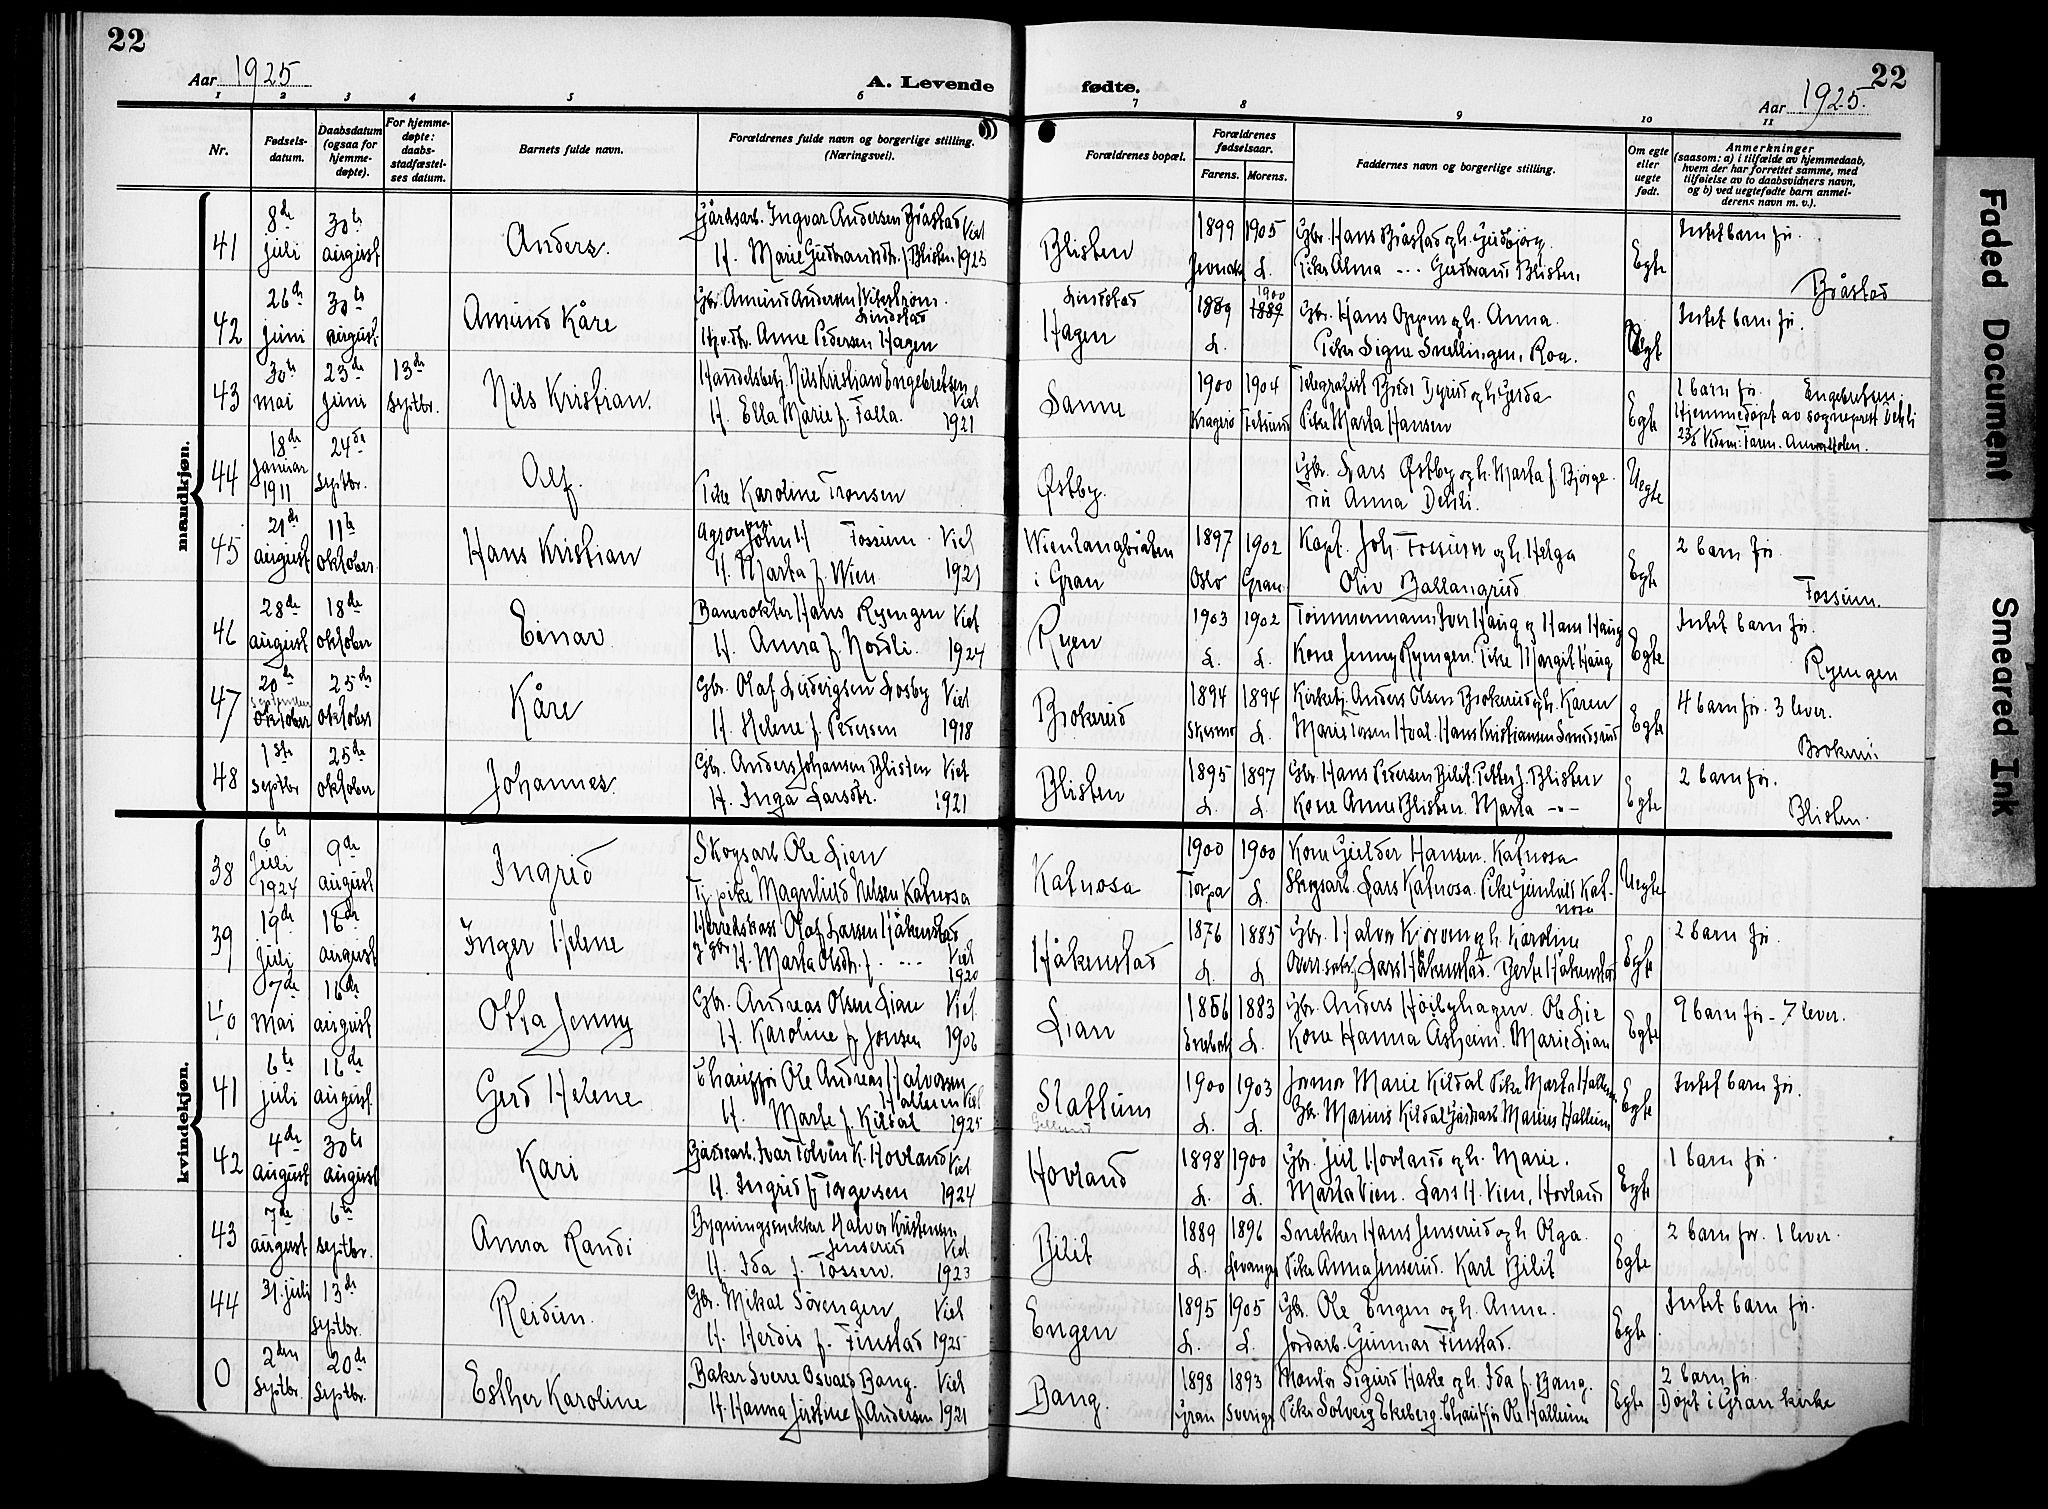 22
Aar 1925
A. Levende
fødte.
22
Aar 1925.
1 2 3 4 5 6 7 8 9 10 11
Nr.
Fødsels-
datum.
Daabsdatum
(ogsaa for
hjemme-
døpte).
For hjemme-
døpte:
daabs-
stadfæstel-
ses datum.
Barnets fulde navn.
Forældrenes fulde navn og borgerlige stilling.
(Næringsvei).
Forældrenes bopæl.
Forældrenes
fødselsaar.
Farens. Morens.
Faddernes navn og borgerlige stilling.
Om egte
eller
uegte
født.
Anmerkninger
(saasom: a) i tilfælde av hjemmedaab,
hvem der har forrettet samme, med
tilføielse av to daabsvidners navn,
og b) ved uegtefødte barn anmel-
derens navn m. v.).
mandkjøn.
8de 30te Gårdsarb. Ingvar Andersen Bråstad Viet 1899 1905 Gbr. Hans Bråstad og h. Gudbjørg. Intet barn før.
41 juli august Anders. H. Marie Gudbrandsdtr. f. Blisten 1925 Blisten Jevnaker L. Pike Alma -"- Gudbrand Blisten. Egte
Bråstad
26de 30te Gbr. Amund Andersen Lindstad 1889 1900 1889 Gbr. Hans Oppen og h. Anna. Intet barn før.
Lindstad
42 juni august. Amund Kåre Anne Pedersen Hagen Hagen L. Pike Signe Snellingen, Roa.
30te 23de 13de Handelsbetj. Nils Kristian Engebretsen 1900 1904 Telegrafist og h. Gerda 1 barn før. Engebretsen.
43 mai juni septbr. Nils Kristian. H. Ella Marie f. Falla. Viet 1921 Sanne Kragerø Fetsund Pike Marta Hansen Egte Hjemmedøpt av sogneprest Dehli
18de 24de 23/6
44 januar 1911 septbr. Alf. Pike Karoline Tronsen Østby. Gbr. Lars Østby og h. Marta f. Bjørge. Uegte
Fru Anna Dehli.
21de 11te Agronom John H. Fossum. Viet Wienlangbråten 1897 1902 Kapt. Joh. Fossum og h. Helga 2 barn før.
45 august oktober. Hans Kristian H. Marta f. Wien. 1921 i Gran Oslo Gran Oliv Ballangrud Egte Fossum.
28de 18de Banevokter Hans Ryengen Viet 1903 1902 Tømmermann Iver Haug og Hans Haug Intet barn før.
46 august oktober Einar H. Anna f. Nordli. 1924 Ryen L. L. Kone Jenny Ryengen. Pike Margit Haug Egte Ryengen
20de 25de Gbr. Olaf Ludvigsen Losby Viet 1894 1894 Kirketj. Anders Olsen Brokerud og h. Karen 4 barn før. 3 lever.
47 september oktober oktober Kåre H. Helene f. Pedersen 1918 Brokerud L. Hans Kristiansen Egte Brokerud
1ste 25de Gbr. Anders Johansen Blisten Viet 1895 1897 Gbr. Hans Pedersen Bilit. Petter J. Blisten 2 barn før.
48 septbr oktober Johannes. H. Inga Larsdtr. 1921 Blisten L. L. Kone Anne Blisten. Marta -"- Egte Blisten.
kvindekjøn.
6te 9de Skogsarb Ole Lien 1900 1900 Kone Hansen. Katnosa
38 juli 1924 august Ingrid Tj. pike Magnhild Nelsen Katnosa Katnosa Torpa L. Skogsarb. Lars Katnosa. Pike Gunhild Kat-
nosa Uegte
19de 16de Herredskass Olaf Larsen Håkenstad 1876 1885 Gbr. Halvor Kjørven og h. Karoline 2 barn før.
39 juli august Inger Helene H. Marta Olsdtr. f. -"- Viet 1920 Håkenstad L. L. Lars Håkenstad. Berte Håkenstad Egte
7de 16de Gbr. Andreas Olsen Lian Viet 1883 Gbr. Anders Høibyhagen. Ole Lie 9 barn før - 7 lever.
40 mai august Otta Jenny H. Karoline f. Jonsen 1906 Lian L. Kone Hanna Åsheim. Marie Lian Egte
6te 16de Chauffør Ole Andreas Halvorsen 1900 1903 Jormor Marie Kildal Pike Marta Hallum Intet barn før.
Hallum Viet
41 juli august Gerd Helene H. Marte f. Kildal 1925 Slattum L. L. Gbr. Marius Kildal Gårdsarb Marius Hallum Egte
4de 30te Gårdsarb. Ivar Tolvin K. Hovland Viet 1898 1900 Gbr. Juel Hovland og h. Marie. 1 barn før.
42 august august Kari H. Ingrid f. Torgersen 1924 Hovland L. L. Marta Vien. Lars H. Vien, Hovland Egte
7de 6te Bygningssnekker Halvor Kristensen 1889 1896 Snekker Hans Jenserud og h. Olga. 2 barn før. 1 lever.
Jenserud Viet
43 august septbr. Anna Randi H. Ida f. Tossen. 1923 Bilit L. Levanger Pike Anna Jenserud. Karl Bilit Egte
31. juli 13de Gbr. Mikal Sørengen Viet 1895 1905 Gbr. Ole Engen og h. Anna. Intet barn før.
44 septbr. Reidun. H. Herdis f. Finstad 1925 Engen L. L. Jordarb. Gunnar Finstad. Egte
2den 20de Baker Sverre Osvald Bang. Viet 1898 1893 Montør Sigurd Hasle og h. Ida f. Bang. 2 barn før.
0 septbr. septbr. Esther Karoline H. Hanna Justine f. Andersen 1921 Bang. Gran Sverige Pike Solveig Ekeberg. Chauffør Ole Hallum Egte Døpt i Gran kirke
Faded Document
Smeared Ink